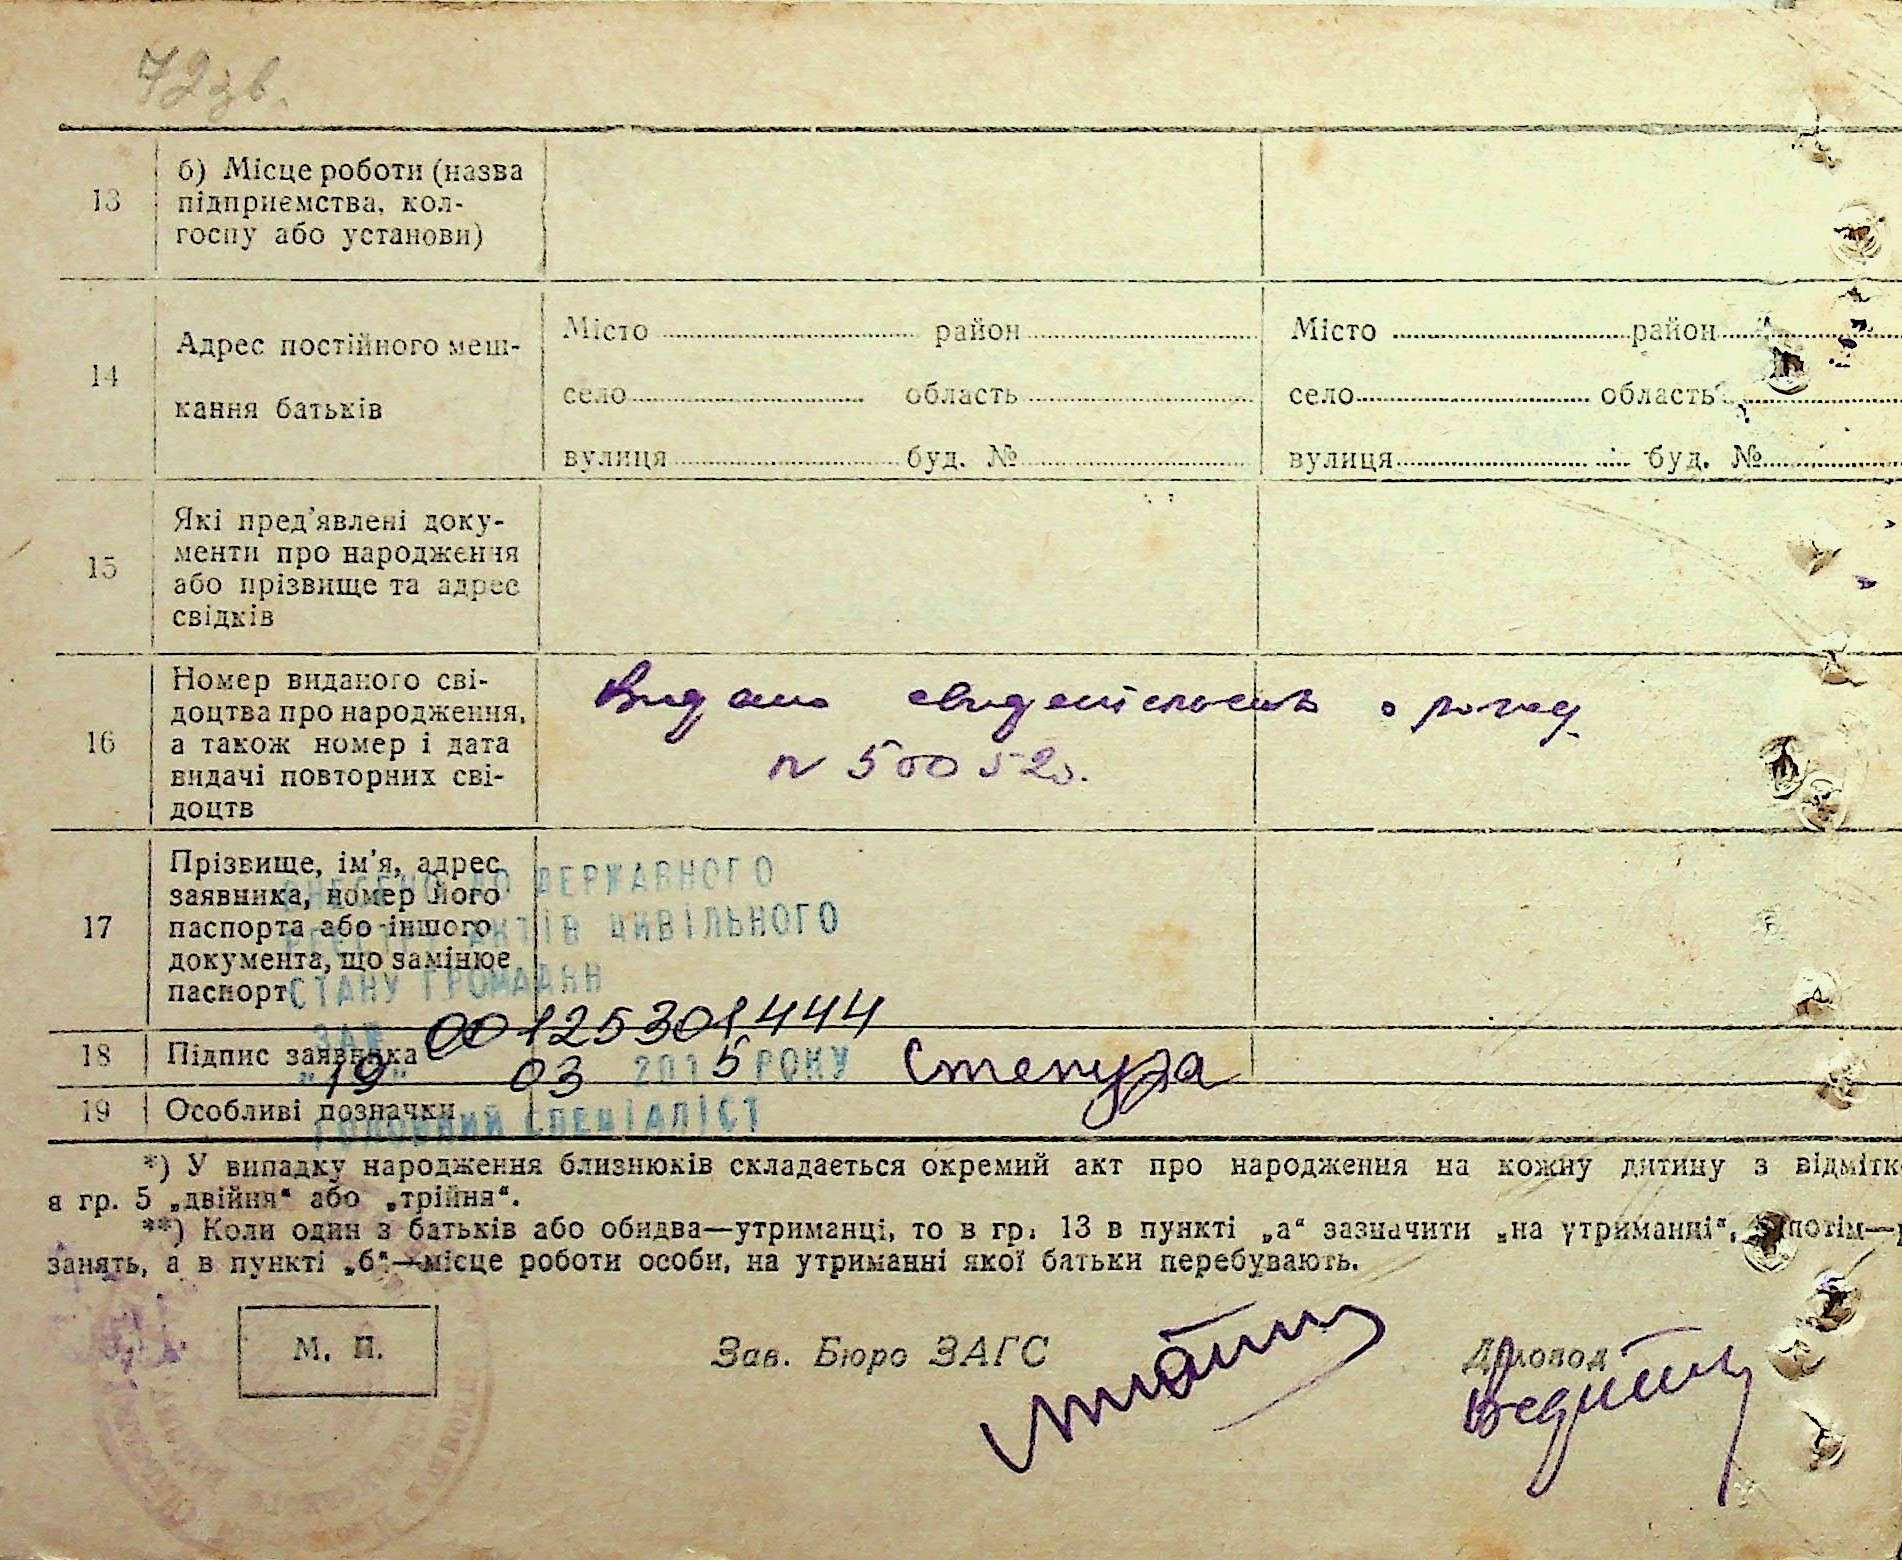 72 зв.
13
б) Місце роботи (назва
підприємства, кол-
госпу або установи)
14
Адрес постійного меш-
кання батьків
Місто район
село область
вулиця буд. №
Місто район
село область
вулиця буд. №
15
Які пред'явлені доку-
менти про народження
або прізвище та адрес
свідків
16
Номер виданого сві-
доцтва про народження,
а також номер і дата
видачі повторних сві-
доцтв
Видано о
№ 500520.
17
Прізвище, ім'я, адрес
заявника, номер його
паспорта або іншого
документа, що замінює
паспорт
ВНЕСЕНО ДО ДЕРЖАВНОГО
РЕЄСТРУ АКТІВ ЦИВІЛЬНОГО
СТАНУ ГРОМАДЯН
ЗА № 00125301444
„19“ 03 2015 РОКУ
ГОЛОВНИЙ СПЕЦІАЛІСТ
18
Підпис заявника
Степура
19
Особливі позначки
*) У випадку народження близнюків складається окремий акт про народження на кожну дитину з відмітк
в гр. 5 „двійня“ або „трійня“.
**) Коли один з батьків або обидва—утриманці, то в гр. 13 в пункті „а“ зазначити „на утриманні“, потім—р
занять, а в пункті „б“—місце роботи особи, на утриманні якої батьки перебувають.
М. П.
Зав. Бюро ЗАГС
Діловод